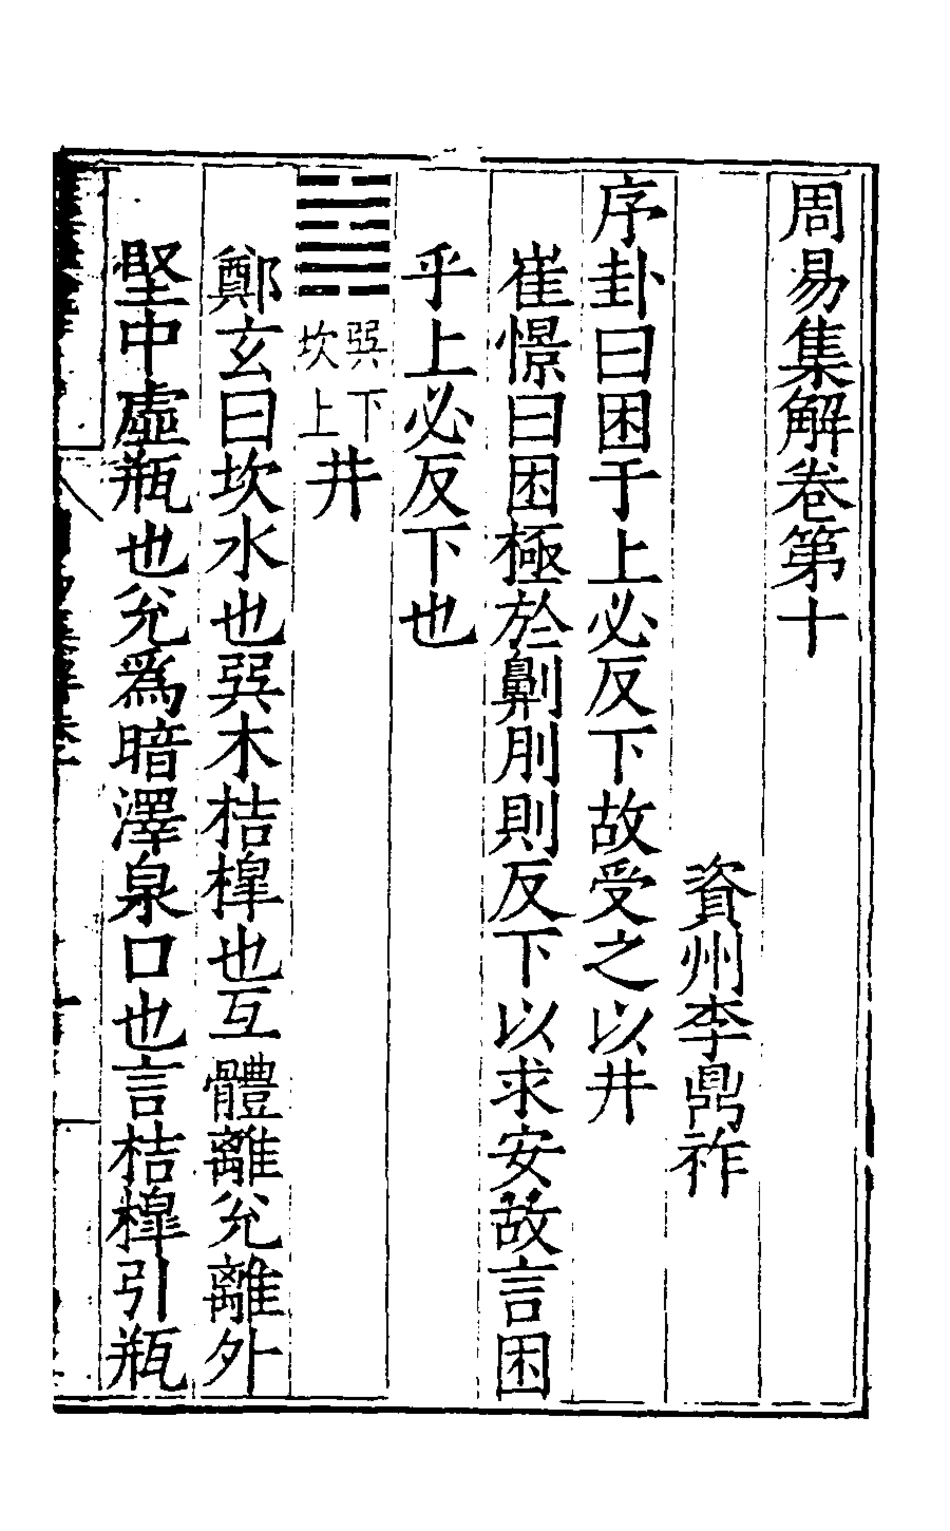 周易集解卷第十
資州李鼎祚
序卦曰困于上必反下故受之以井
崔憬曰困極於劓刖則反下以求安故言困
乎上必反下也
䷯巽下坎上井
鄭玄曰坎水也巽木桔槔也互體離兊離外
堅中虛瓶也兊爲暗澤泉口也言桔槔引瓶